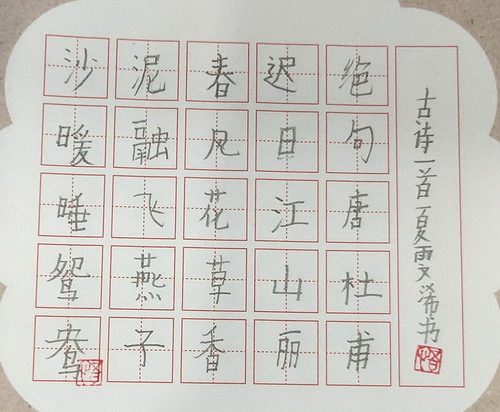 古诗一首夏雯浠书
绝句唐杜甫
迟日江山丽
春风花草香
泥融飞燕子
沙暖睡鸳鸯